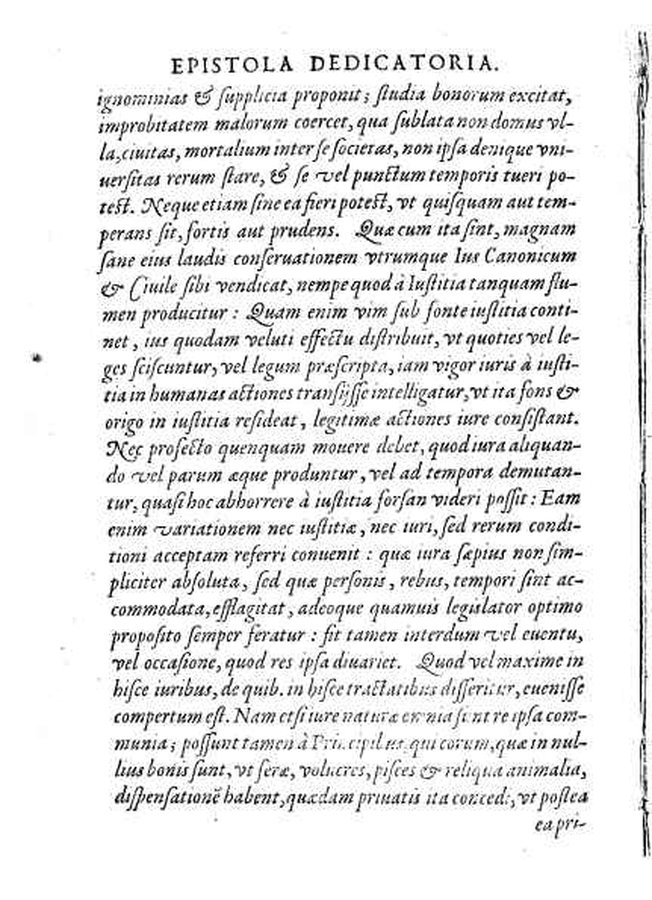 EPISTOLA DEDICATORIA.
ignominias & supplicia proponit; studia bonorum excitat,
improbitatem malorum coercet, qua sublata non domus vl-
la, ciuitas, mortalium inter se societas, non ipsa denique vni-
uersitas rerum stare, & se vel punctum temporis tueri po-
test. Neque etiam sine ea fieri potest, vt quisquam aut tem-
perans sit, fortis aut prudens. Quæ cum ita sint, magnam
sane eius laudis conseruationem vtrumque Ius Canonicum
& Ciuile sibi vendicat, nempe quod à Iustitia tanquam flu-
men producitur : Quam enim vim sub fonte iustitia conti-
net, ius quodam veluti effectu distribuit, vt quoties vel le-
ges sciscuntur, vel legum præscripta, iam vigor iuris à iusti-
tia in humanas actiones transijsse intelligatur, vt ita fons &
origo in iustitia resideat, legitimæ actiones iure consistant.
Nec profecto quenquam mouere debet, quod iura aliquan-
do vel parum æque produntur, vel ad tempora demutan-
tur, quasi hoc abhorrere à iustitia forsan videri possit : Eam
enim variationem nec iustitiæ, nec iuri, sed rerum condi-
tioni acceptam referri conuenit : quæ iura sæpius non sim-
pliciter absoluta, sed quæ personis, rebus, tempori sint ac-
commodata, efflagitat, adeoque quamuis legislator optimo
proposito semper feratur : fit tamen interdum vel euentu,
vel occasione, quod res ipsa diuariet. Quod vel maxime in
hisce iuribus, de quib. in hisce tractatibus disseritur, euenisse
compertum est. Nam etsi iure naturæ omnia sunt re ipsa com-
munia; possunt tamen à Principibus, qui eorum, quæ in nul-
lius bonis sunt, vt feræ, volucres, pisces & reliqua animalia,
dispensationē habent, quædam priuatis ita concedi, vt postea
ea pri-